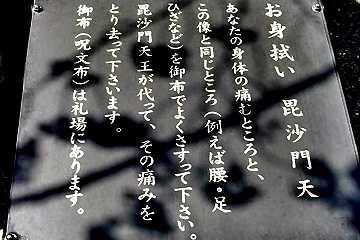 お身拭い 毘沙門天
あなたの身体の痛むところと、
この像と同じところ(例えば腰・足
ひざなど)を御布でよくさすって下さい。
毘沙門天王が代って、その痛みを
とり去って下さいます。
御布(呪文布)は札場にあります。